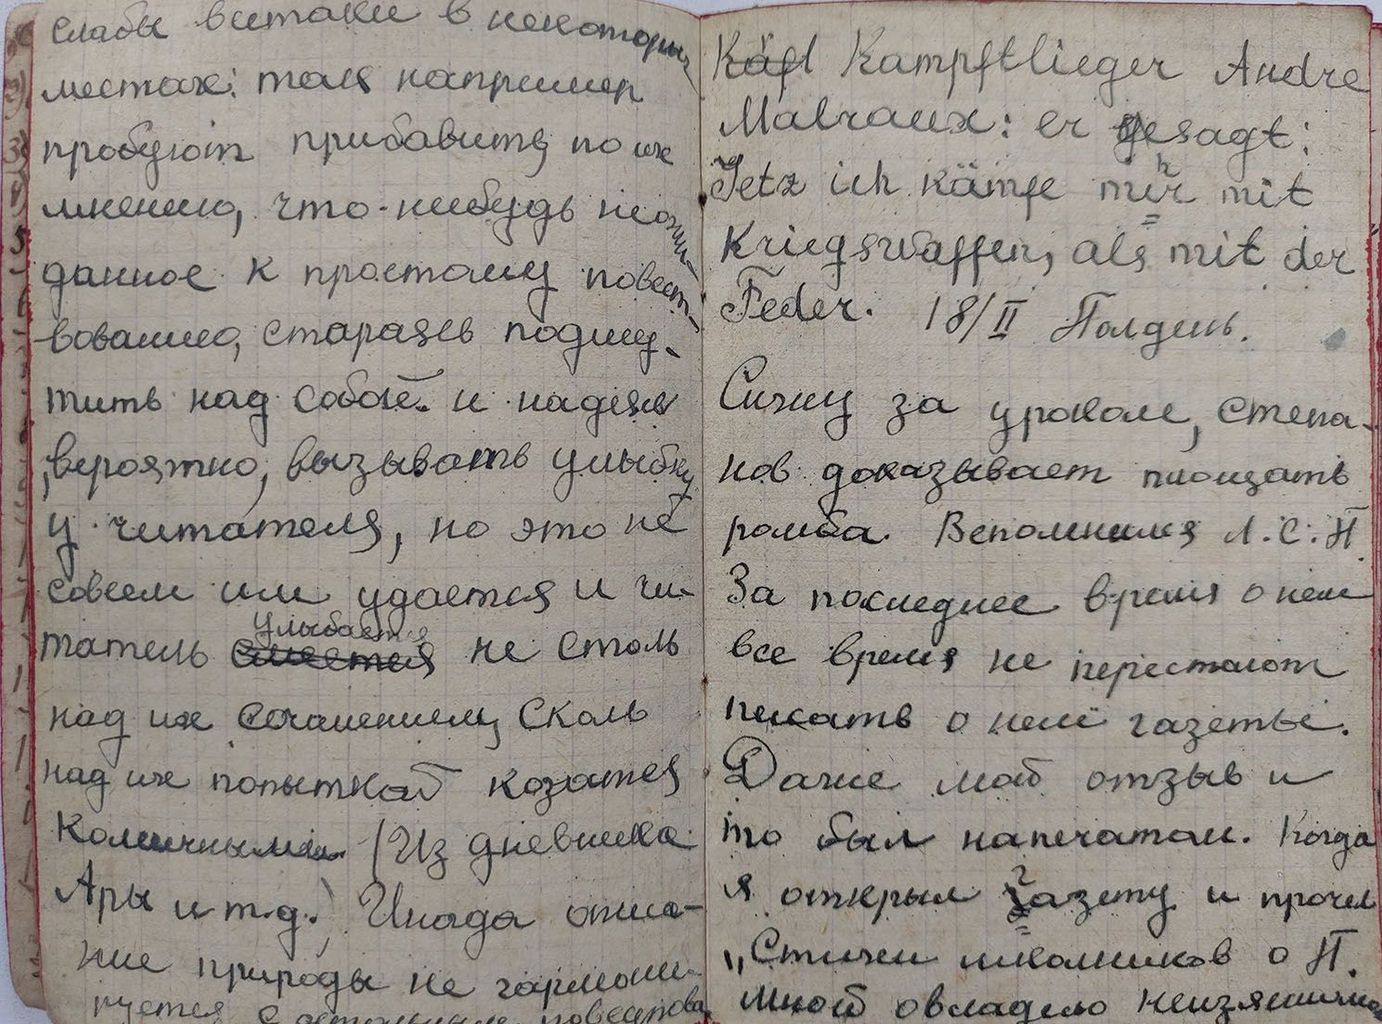 слабы всетаки в некоторых
местах: там например
пробуют прибавить, по их
мнению, что-нибудь неожи-
данное к простому повест-
вованию, стараясь подшу-
тить над собой. и надеясь
, вероятно, вызывать улыбку
у читателя, но это не
совсем им удается и чи-
улыбается
татель смеется не столь
над их сочинением, сколь
над их попыткой козатся
комичными. (Из дневника
Ары и т.д.) Иногда описа-
ние природы не гармони-
руется с остальным повествова
Käfl Kampftlieger Andre
Malraux: er gesagt:
Jetz ich kämfe mir mit
h
Kriegswaffen, als mit der
Feder. 18/II Полдень.
Сижу за уроком, Степа-
нов доказывает площать
ромба. Вспомнился Л.С.П.
За последнее время о нем
все время не перестают
писать о нем газеты.
Даже мой отзыв и
то был напечатан. Когда
я открыл газету и прочел
г
„Стихи школьников о П.
Мной овладело неизяснимо